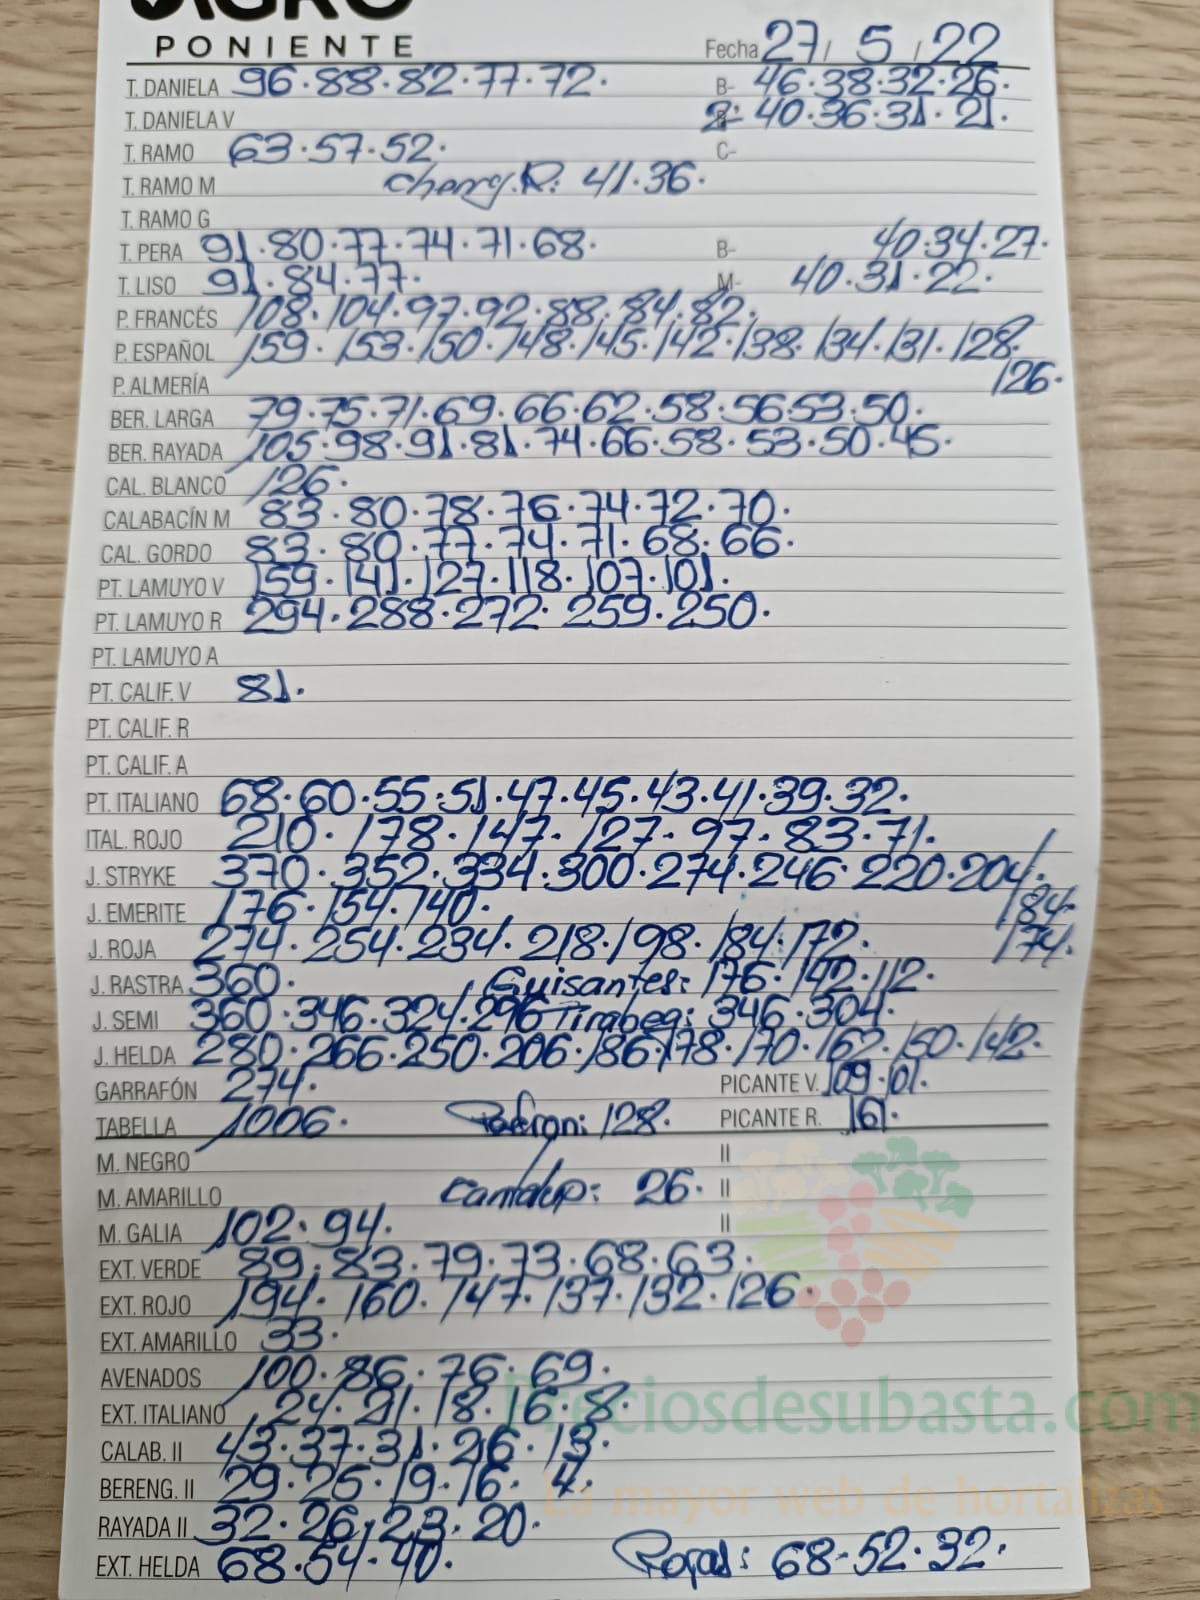 AGRO
PONIENTE
Fecha 27/ 5 /22
T. DANIELA 96.88.82.77.72. B- 46.38.32.26.
T. DANIELA V 2- 40.36.31.21.
T. RAMO 63.57.52. C-
T. RAMO M Cherry.R: 41.36.
T. RAMO G
T. PERA 91.80.77.74.71.68. B- 40.34.27.
T. LISO 91.84.77. M- 40.31.22.
P. FRANCÉS 108.104.97.92.88.84.82.
P. ESPAÑOL 159.153.150.148.145.142.138.134.131.128.
P. ALMERÍA 126.
BER. LARGA 79.75.71.69.66.62.58.56.53.50.
BER. RAYADA 105.98.91.81.74.66.58.53.50.45.
CAL. BLANCO 126.
CALABACÍN M 83.80.78.76.74.72.70.
CAL. GORDO 83.80.77.74.71.68.66.
PT. LAMUYO V 159.141.127.118.107.101.
PT. LAMUYO R 294.288.272.259.250.
PT. LAMUYO A
PT. CALIF. V 81.
PT. CALIF. R
PT. CALIF. A
PT. ITALIANO 68.60.55.51.47.45.43.41.39.32.
ITAL. ROJO 210.178.147.127.97.83.71.
J. STRYKE 370.352.334.300.274.246.220.204/
J. EMERITE 176.154.140. 184.
J. ROJA 274.254.234.218.198.184.172. 174.
J. RASTRA 360. Guisantes: 176.142.112.
J. SEMI 360.346.324.296 Tirabeq: 346.304.
J. HELDA 280.266.250.206.186.178.170.162.150.142.
GARRAFÓN 274. PICANTE V. 109.101.
TABELLA 1006. Padron: 128. PICANTE R. 161.
M. NEGRO II
M. AMARILLO Cantalup: 26. II
M. GALIA 102.94. II
EXT. VERDE 89.83.79.73.68.63.
EXT. ROJO 194.160.147.137.132.126.
EXT. AMARILLO 33.
AVENADOS 100.86.76.69.
Preciosdesubasta.com
EXT. ITALIANO 24.21.18.16.8.
CALAB. II 43.37.31.26.13.
BERENG. II 29.25.19.16.4.
La mayor web de hortalizas
RAYADA II 32.26.23.20.
EXT. HELDA 68.54.40. Rojas: 68.52.32.